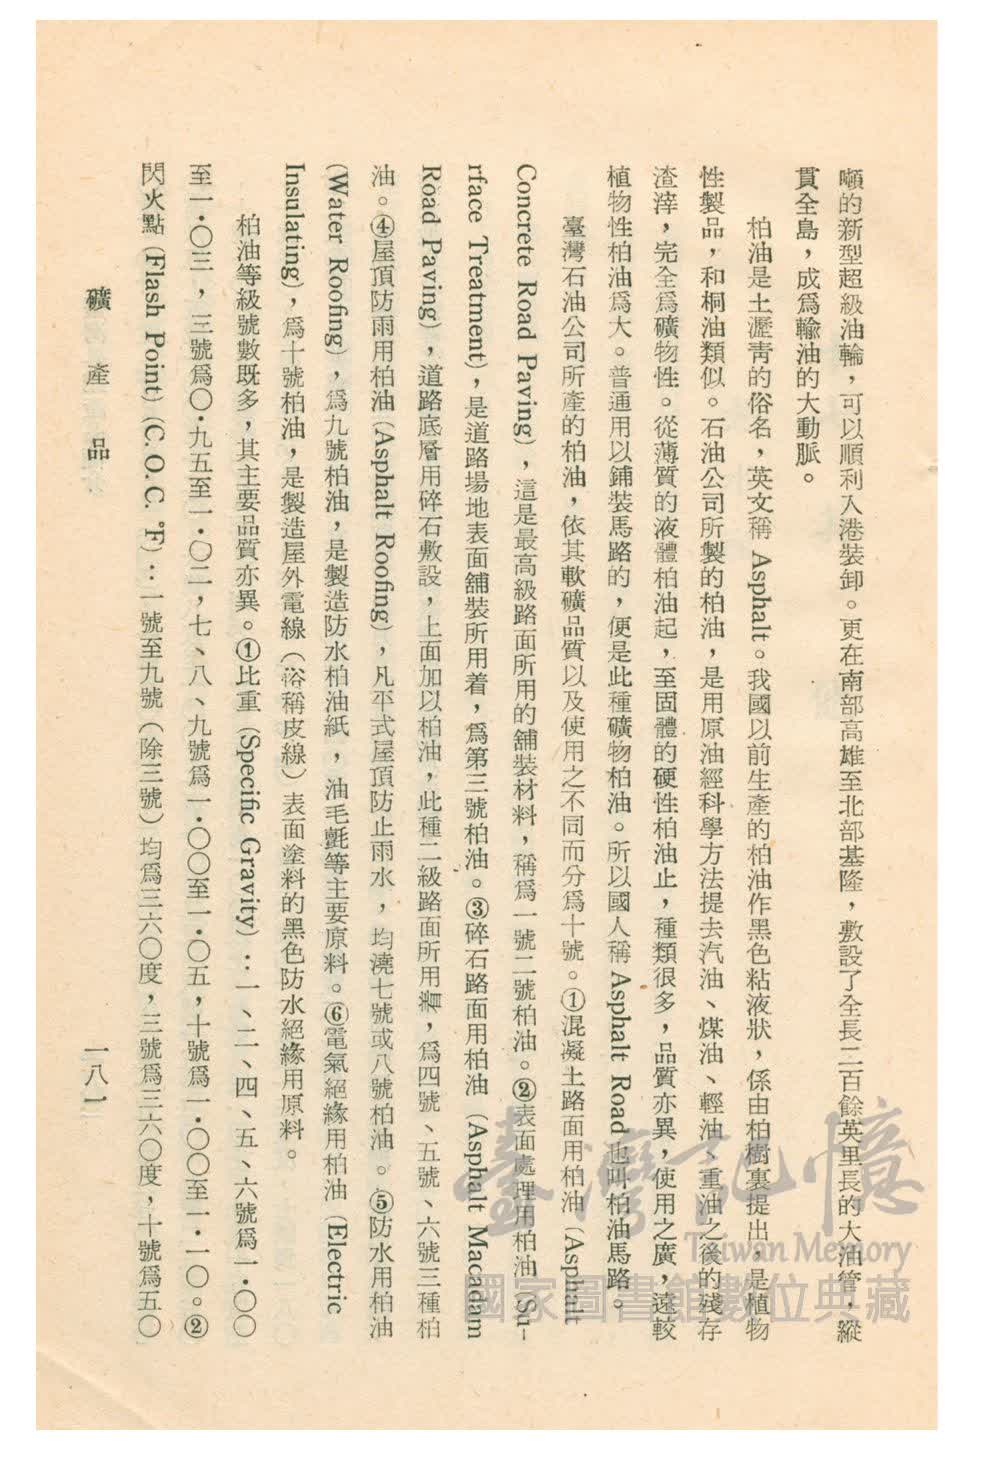 噸的新型超級油輪，可以順利入港裝卸。更在南部高雄至北部基隆，敷設了全長二百餘英里長的大油管，縱
貫全島，成爲輸油的大動脈。
柏油是土瀝靑的俗名，英文稱 Asphalt。我國以前生產的柏油作黑色粘液狀，係由柏樹裏提出，是植物
性製品，和桐油類似。石油公司所製的柏油，是用原油經科學方法提去汽油、煤油、輕油、重油之後的殘存
渣滓，完全爲礦物性。從薄質的液體柏油起，至固體的硬性柏油止，種類很多，品質亦異，使用之廣，遠較
植物性柏油爲大。普通用以鋪裝馬路的，便是此種礦物柏油。所以國人稱 Asphalt Road 也叫柏油馬路。
臺灣石油公司所產的柏油，依其軟礦品質以及使用之不同而分爲十號。①混凝土路面用柏油（Asphalt
Concrete Road Paving），這是最高級路面所用的舖裝材料，稱爲一號二號柏油。②表面處理用柏油（Su-
rface Treatment），是道路場地表面舖裝所用着，爲第三號柏油。③碎石路面用柏油（Asphalt Macadam
Road Paving），道路底層用碎石敷設，上面加以柏油，此種二級路面所用着，爲四號、五號、六號三種柏
油。④屋頂防雨用柏油（Asphalt Roofing），凡平式屋頂防止雨水，均澆七號或八號柏油。⑤防水用柏油
（Water Roofing），爲九號柏油，是製造防水柏油紙，油毛氈等主要原料。⑥電氣絕緣用柏油（Electric
Insulating），爲十號柏油，是製造屋外電線（俗稱皮線）表面塗料的黑色防水絕緣用原料。
柏油等級號數既多，其主要品質亦異。①比重（Specific Gravity）：一、二、四、五、六號爲一・〇〇
至一・〇三，三號爲〇・九五至一・〇二，七、八、九號爲一・〇〇至一・〇五，十號爲一・〇〇至一・一〇。②
閃火點（Flash Point）（C.O.C. °F）：一號至九號（除三號）均爲三六〇度，三號爲三六〇度，十號爲五〇
礦產品
一八一
臺灣記憶
Taiwan Memory
國家圖書館數位典藏